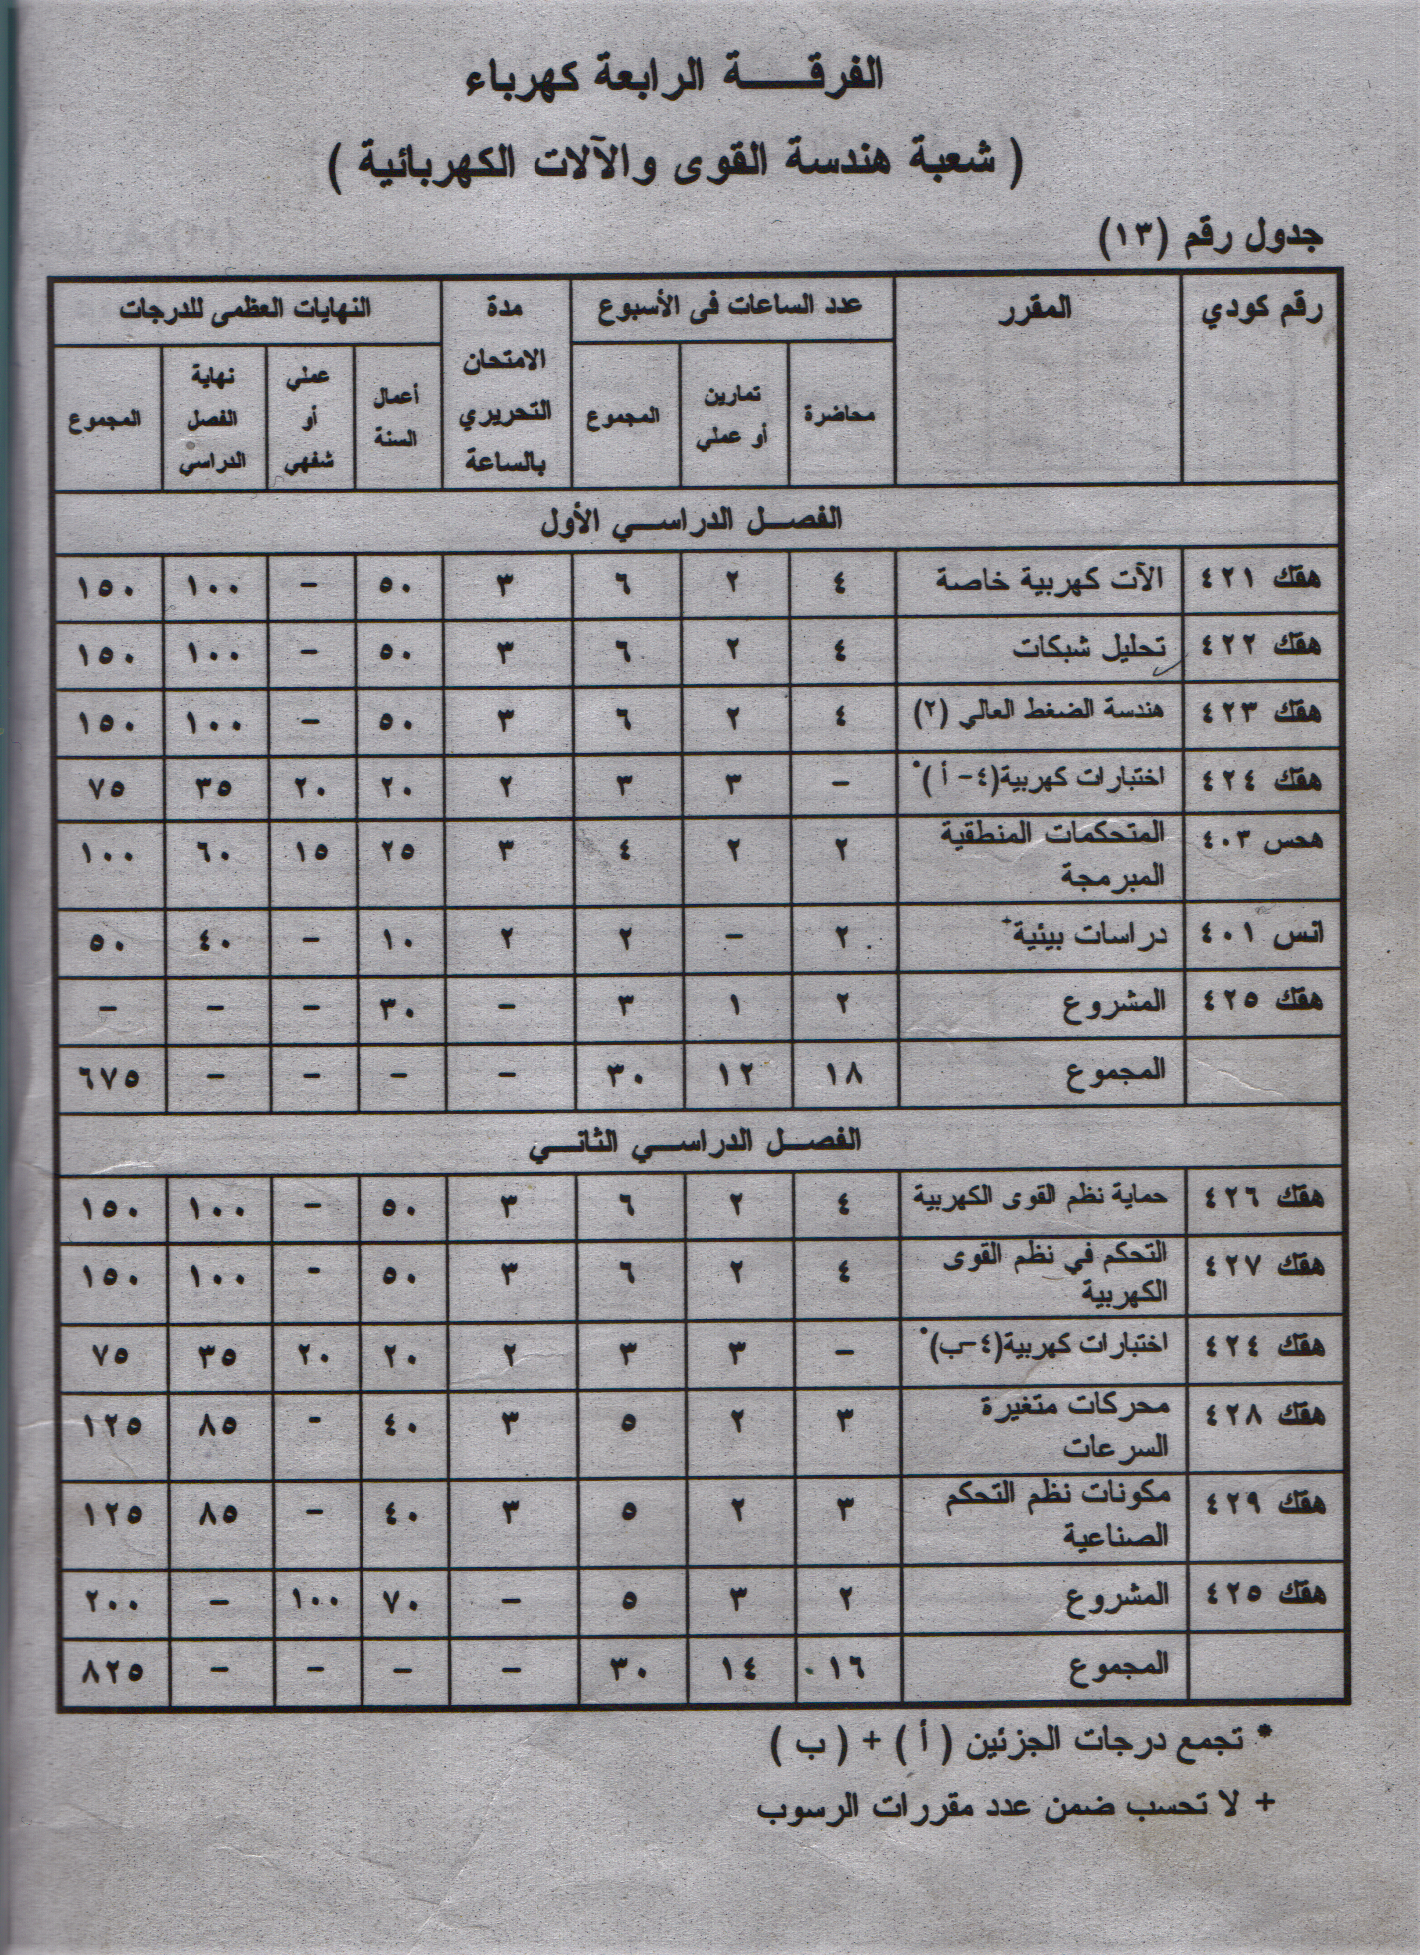 الفرقــــة الرابعة كهرباء
( شعبة هندسة القوى والآلات الكهربائية )
جدول رقم (١٣)
رقم كودي | المقرر | عدد الساعات فى الأسبوع | مدة الامتحان التحريري بالساعة | النهايات العظمى للدرجات
محاضرة | تمارين أو عملي | المجموع | أعمال السنة | عملي أو شفهي | نهاية الفصل الدراسي | المجموع
الفصــل الدراســي الأول
هقك ٤٢١ | الآت كهربية خاصة | ٤ | ٢ | ٦ | ٣ | ٥٠ | – | ١٠٠ | ١٥٠
هقك ٤٢٢ | تحليل شبكات | ٤ | ٢ | ٦ | ٣ | ٥٠ | – | ١٠٠ | ١٥٠
هقك ٤٢٣ | هندسة الضغط العالي (٢) | ٤ | ٢ | ٦ | ٣ | ٥٠ | – | ١٠٠ | ١٥٠
هقك ٤٢٤ | اختبارات كهربية(٤- أ )* | – | ٣ | ٣ | ٢ | ٢٠ | ٢٠ | ٣٥ | ٧٥
هحس ٤٠٣ | المتحكمات المنطقية المبرمجة | ٢ | ٢ | ٤ | ٣ | ٢٥ | ١٥ | ٦٠ | ١٠٠
انس ٤٠١ | دراسات بيئية+ | ٢ | – | ٢ | ٢ | ١٠ | – | ٤٠ | ٥٠
هقك ٤٢٥ | المشروع | ٢ | ١ | ٣ | – | ٣٠ | – | – | –
المجموع | ١٨ | ١٢ | ٣٠ | – | – | – | – | ٦٧٥
الفصــل الدراســي الثانــي
هقك ٤٢٦ | حماية نظم القوى الكهربية | ٤ | ٢ | ٦ | ٣ | ٥٠ | – | ١٠٠ | ١٥٠
هقك ٤٢٧ | التحكم في نظم القوى الكهربية | ٤ | ٢ | ٦ | ٣ | ٥٠ | - | ١٠٠ | ١٥٠
هقك ٤٢٤ | اختبارات كهربية(٤-ب)* | – | ٣ | ٣ | ٢ | ٢٠ | ٢٠ | ٣٥ | ٧٥
هقك ٤٢٨ | محركات متغيرة السرعات | ٣ | ٢ | ٥ | ٣ | ٤٠ | - | ٨٥ | ١٢٥
هقك ٤٢٩ | مكونات نظم التحكم الصناعية | ٣ | ٢ | ٥ | ٣ | ٤٠ | – | ٨٥ | ١٢٥
هقك ٤٢٥ | المشروع | ٢ | ٣ | ٥ | – | ٧٠ | ١٠٠ | – | ٢٠٠
المجموع | ١٦ | ١٤ | ٣٠ | – | – | – | – | ٨٢٥
* تجمع درجات الجزئين ( أ ) + ( ب )
+ لا تحسب ضمن عدد مقررات الرسوب